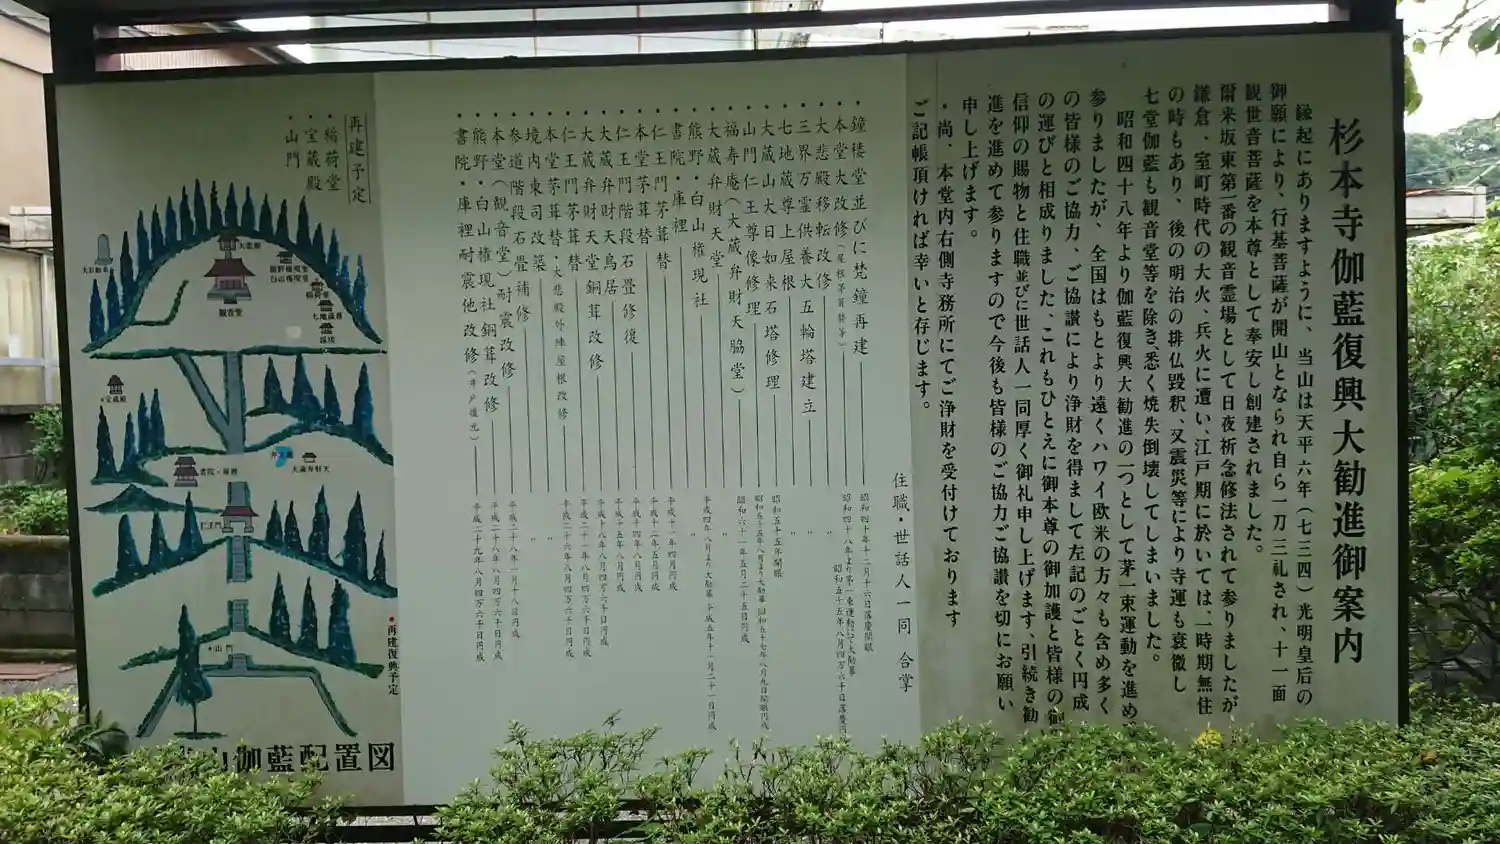 杉本寺伽藍復興大勧進御案内
縁起にありますように、当山は天平六年（七三四）光明皇后の
御願により、行基菩薩が開山となられ自ら一刀三礼され、十一面
観世音菩薩を本尊として奉安し創建されました。
爾来坂東第一番の観音霊場として日夜祈念修法されて参りましたが
鎌倉、室町時代の大火、兵火に遭い、江戸期に於いては、一時期無住
の時もあり、後の明治の排仏毀釈、又震災等により寺運も衰微し
七堂伽藍も観音堂等を除き、悉く焼失倒壊してしまいました。
昭和四十八年より伽藍復興大勧進の一つとして茅一束運動を進め
参りましたが、全国はもとより遠くハワイ欧米の方々も含め多く
の皆様のご協力、ご協讃により浄財を得まして左記のごとく円成
の運びと相成りました、これもひとえに御本尊の御加護と皆様の御
信仰の賜物と住職並びに世話人一同厚く御礼申し上げます、引続き勧
進を進めて参りますので今後も皆様のご協力ご協讃を切にお願い
申し上げます。
・尚、本堂内右側寺務所にてご浄財を受付けております
ご記帳頂ければ幸いと存じます。
住職・世話人一同 合掌
・鐘楼堂並びに梵鐘再建 昭和四十年十二月十六日落慶開眼
・本堂大改修（屋根茅葺替等） 昭和四十八年より茅一束運動にて大勧募 昭和五十五年八月四万六千日落慶円
・大悲殿移転改修 〃
・三界万霊供養大五輪塔建立 〃
・七地蔵尊上屋根 〃
・大蔵山大日如来石塔修理 昭和五十五年開眼
・山門仁王尊像修理 昭和五十五年八月より大勧募 昭和五十七年八月九日開眼円成
・福寿庵（大蔵弁財天脇堂） 昭和六十一年五月二十五日円成
・大蔵弁財天堂 〃
・熊野・白山権現社 平成四年八月より大勧募 平成五年十一月二十一日円成
・書院・庫裡 〃
・仁王門茅葺替 平成十二年四月円成
・本堂茅葺替 平成十二年五月円成
・仁王門階段石畳修復 平成十四年八月円成
・大蔵弁財天鳥居 平成十五年八月円成
・大蔵弁財天堂銅葺改修 平成十八年八月四万六千日円成
・仁王門茅葺替 平成二十一年八月四万六千日円成
・境内東司改築・大悲殿外陣屋根改修 平成二十六年八月四万六千日円成
・参道階段石畳補修 〃
・本堂（観音堂）耐震改修 平成二十八年一月十八日円成
・熊野・白山権現社銅葺改修 平成二十八年八月四万六千日円成
・書院・庫裡耐震他改修（井戸復元） 平成二十九年八月四万六千日円成
再建予定
・稲荷堂
・宝蔵殿
・山門
大悲殿
観音堂
熊野権現堂
白山権現堂
稲荷堂
七地蔵尊
鐘楼
大日如来
宝蔵殿
書院・庫裡
大蔵弁財天
仁王門
山門
●再建復興予定
山伽藍配置図